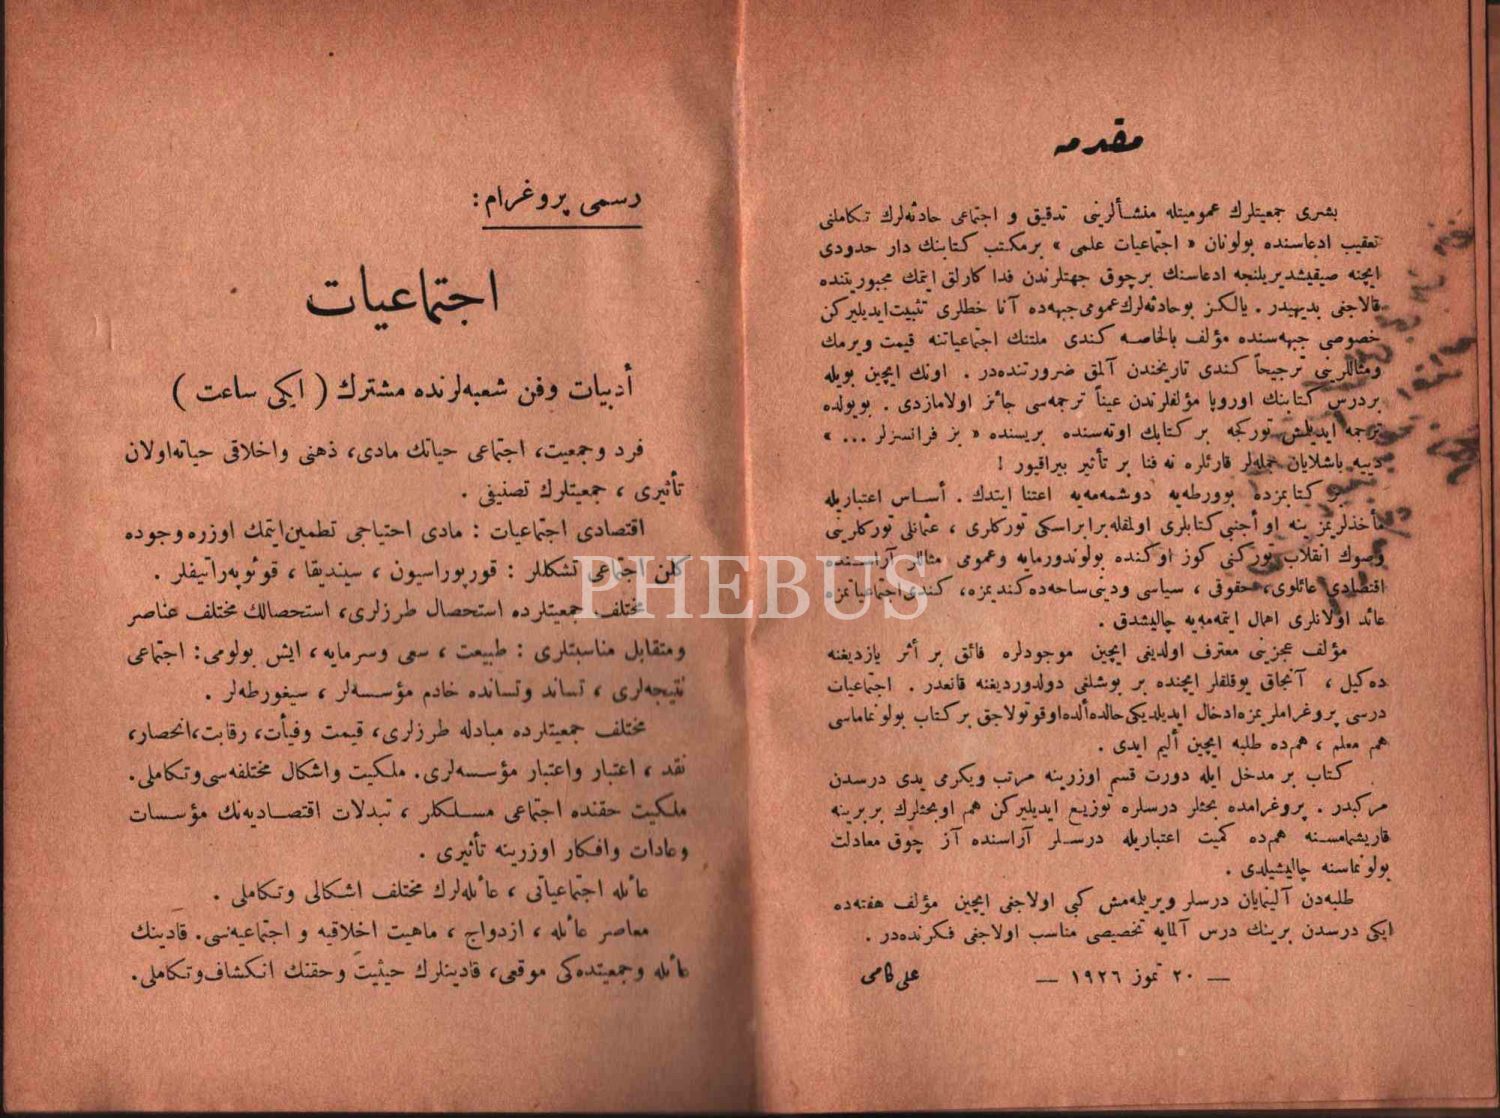 مقدمه
بشری جمعیتلرك عمومیتله منشألرینی تدقیق و اجتماعی حادثه‌لرك تكاملنی
تعقیب ادعاسنده بولونان « اجتماعیات علمی » برمكتب كتابنك دار حدودی
ایچنه صیقیشدیریلنجه ادعاسنك برچوق جهتلرندن فدا كارلق ایتمك مجبوریتنده
قالاجغی بدیهیدر . یالكز بوحادثه‌لرك عمومی جبهه‌ده آنا خطلری تثبیت ایدیلیركن
خصوصی جبهه‌سنده مؤلف بالخاصه كندی ملتنك اجتماعیاتنه قیمت ویرمك
ومثاللرینی ترجیحاً كندی تاریخندن آلمق ضرورتنده‌در . اونك ایچین بویله
بردرس كتابنك اوروپا مؤلفلرندن عیناً ترجمه‌سی جائز اولامازدی . بویولده
ترجمه ایدیلمش توركجه بر كتابك اوته‌سنده بریسنده « بز فرانسزلر ... »
دییه باشلایان جمله‌لر قارئلره نه فنا بر تأثیر بیراقیور !
بز كتابمزده بوورطه‌یه دوشمه‌مه‌یه اعتنا ایتدك . أساس اعتباریله
مأخذلریمز ینه او أجنبی كتابلری اولمقله برابر اسكی توركلری ، عثمانلی توركلرینی
وصوك انقلاب توركنی كوز اوكنده بولوندورمایه وعمومی مثاللر آراسنده
اقتصادی عائلوی، حقوقی ، سیاسی ودینی ساحه‌ده كندیمزه، كندی اجتماعیاتمزه
عائد اولانلری اهمال ایتمه‌مه‌یه چالیشدق .
مؤلف عجزینی معترف اولدیغی ایچین موجودلره فائق بر أثر یازدیغنه
ده‌كیل ، آنجاق یوقلقلر ایچنده بر بوشلغی دولدوردیغنه قانعدر . اجتماعیات
درسی پروغراملریمزه ادخال ایدیلدیكی حالده ألده اوقوتولاجق بر كتاب بولونماماسی
هم معلم ، هم‌ده طلبه ایچین ألیم ایدی .
كتاب بر مدخل ایله دورت قسم اوزرینه مرتب ویكرمی یدی درسدن
مركبدر . پروغرامده بحثلر درسلره توزیع ایدیلیركن هم اوبحثلرك بربرینه
قاریشمامسنه هم‌ده كمیت اعتباریله درسلر آراسنده آز چوق معادلت
بولونماسنه چالیشیلدی .
طلبه‌دن آلینمایان درسلر ویریلمه‌مش كبی اولاجغی ایچین مؤلف هفته‌ده
ایكی درسدن برینك درس آلمایه تخصیصی مناسب اولاجغی فكرنده‌در .
— ٢٠ تموز ١٩٢٦ — علی كامی
رسمی پروغرام :
اجتماعیات
أدبیات وفن شعبه‌لرنده مشترك ( ایكی ساعت )
فرد وجمعیت، اجتماعی حیاتك مادی، ذهنی واخلاقی حیاته اولان
تأثیری ، جمعیتلرك تصنیفی .
اقتصادی اجتماعیات : مادی احتیاجی تطمین ایتمك اوزره وجوده
كلن اجتماعی تشكللر : قورپوراسیون ، سیندیقا ، قوئوپه‌راتیفلر .
مختلف جمعیتلرده استحصال طرزلری، استحصالك مختلف عناصر
ومتقابل مناسبتلری : طبیعت ، سعی وسرمایه ، ایش بولومی: اجتماعی
نتیجه‌لری ، تساند وتسانده خادم مؤسسه‌لر ، سیغورطه‌لر .
مختلف جمعیتلرده مبادله طرزلری، قیمت وفیأت، رقابت، انحصار،
نقد ، اعتبار واعتبار مؤسسه‌لری. ملكیت واشكال مختلفه‌سی وتكاملی.
ملكیت حقنده اجتماعی مسلكلر ، تبدلات اقتصادیه‌نك مؤسسات
وعادات وافكار اوزرینه تأثیری .
عائله اجتماعیاتی ، عائله‌لرك مختلف اشكالی وتكاملی .
معاصر عائله ، ازدواج ، ماهیت اخلاقیه و اجتماعیه‌سی. قادینك
عائله وجمعیتده‌كی موقعی، قادینلرك حیثیت وحقنك انكشاف وتكاملی.
PHEBUS